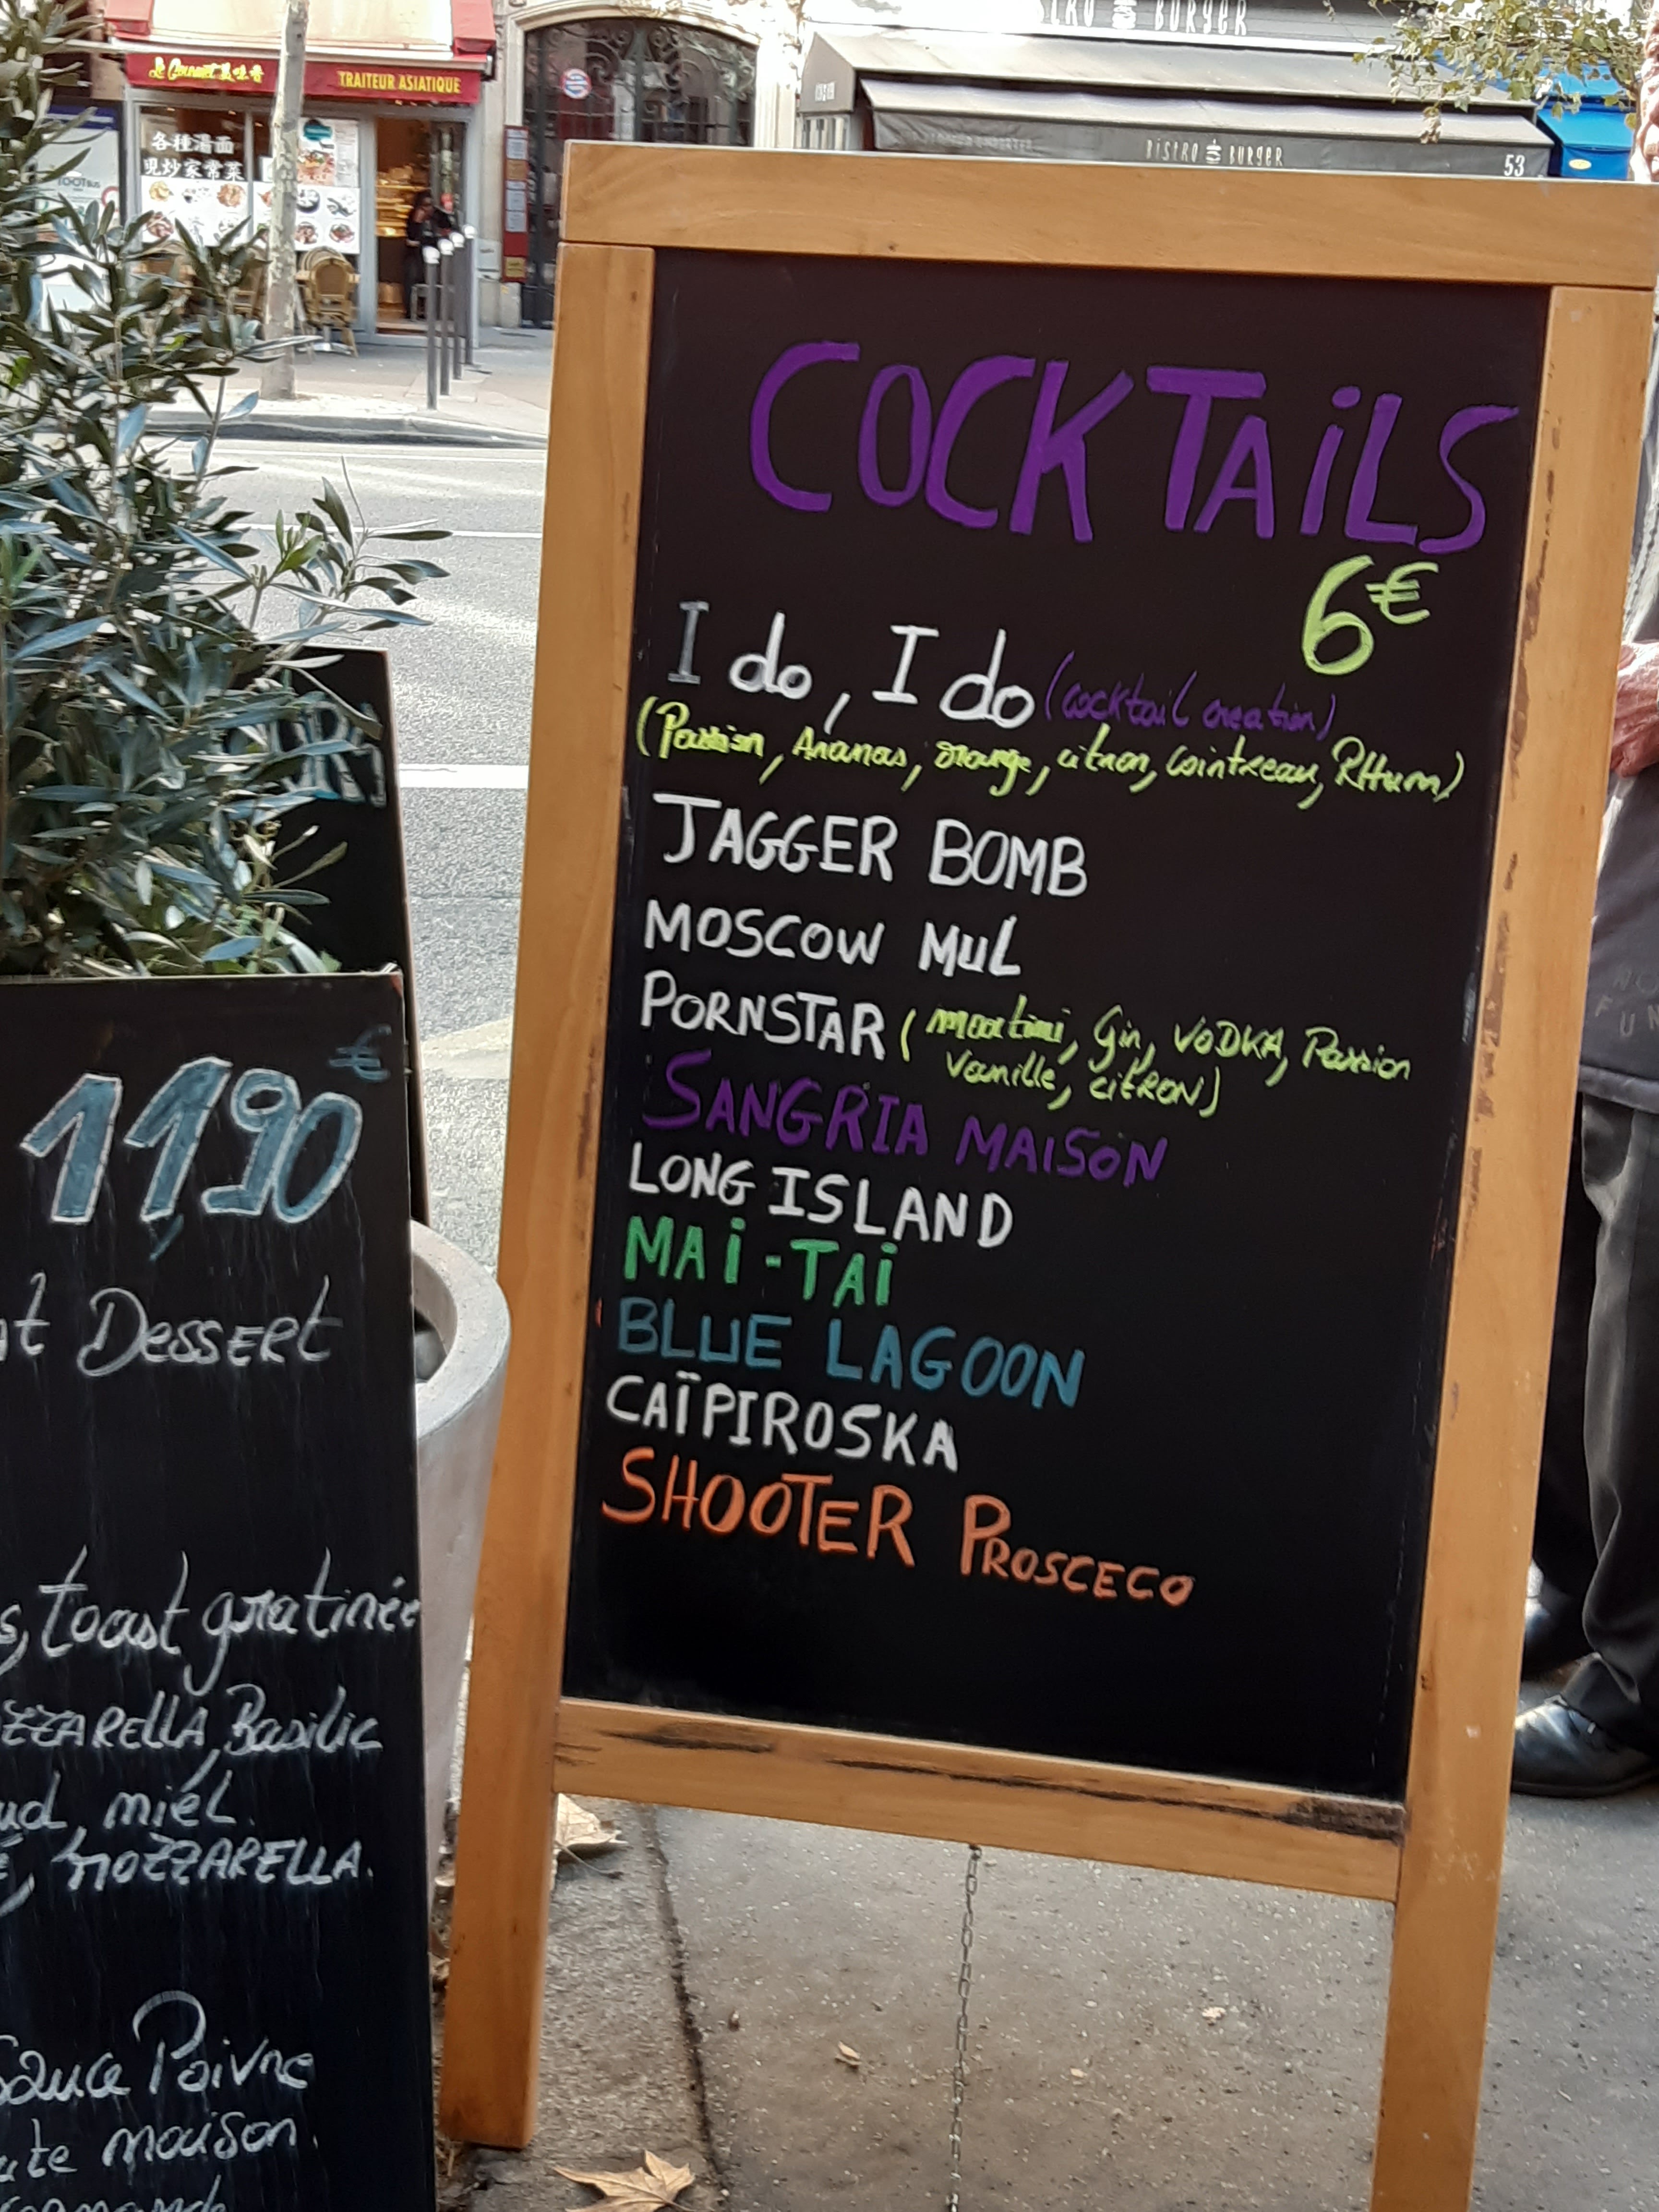 Le Gourmet 美味香
TRAITEUR ASIATIQUE
各種湯面
現炒家常菜
BURGER
BISTRO BURGER
53
COCKTAiLS
6€
I do, I do (cocktail creation)
(Passion, Ananas, orange, citron, Cointreau, RHum)
JAGGER BOMB
MOSCOW MuL
PORNSTAR (martini, Gin, VODKA, Passion
Vanille, CiTRON)
SANGRIA MAISON
LONG ISLAND
MAi-TAi
BLUE LAGOON
CAÏPIROSKA
SHOOTER PROSCECO
11,90€
Dessert
toast gratinée
Basilic
miel.
MOZZARELLA.
Sauce Poivre
maison.